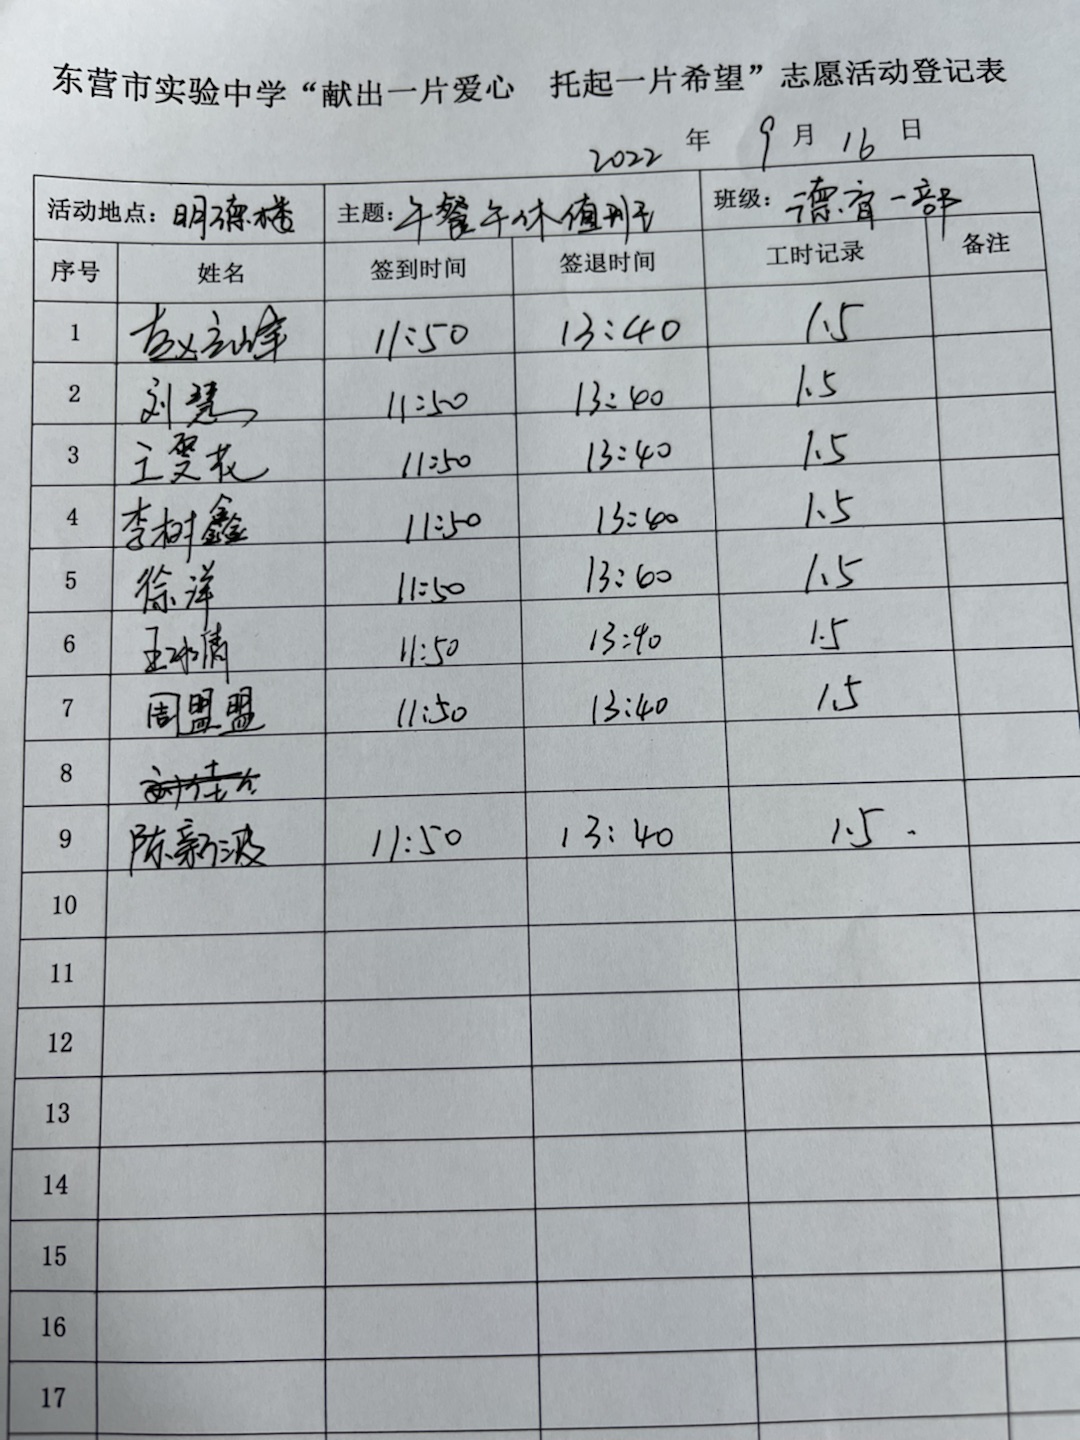 东营市实验中学“献出一片爱心 托起一片希望”志愿活动登记表
2022 年 9 月 16 日
活动地点: 明德楼 主题: 午餐午休值班 班级: 德育一部
序号 姓名 签到时间 签退时间 工时记录 备注
1 赵立峰 11:50 13:40 1.5
2 刘慧 11:50 13:40 1.5
3 11:50 13:40 1.5
4 李树鑫 11:50 13:40 1.5
5 徐洋 11:50 13:40 1.5
6 王冰清 11:50 13:40 1.5
7 周盟盟 11:50 13:40 1.5
8
9 陈新波 11:50 13:40 1.5.
10
11
12
13
14
15
16
17